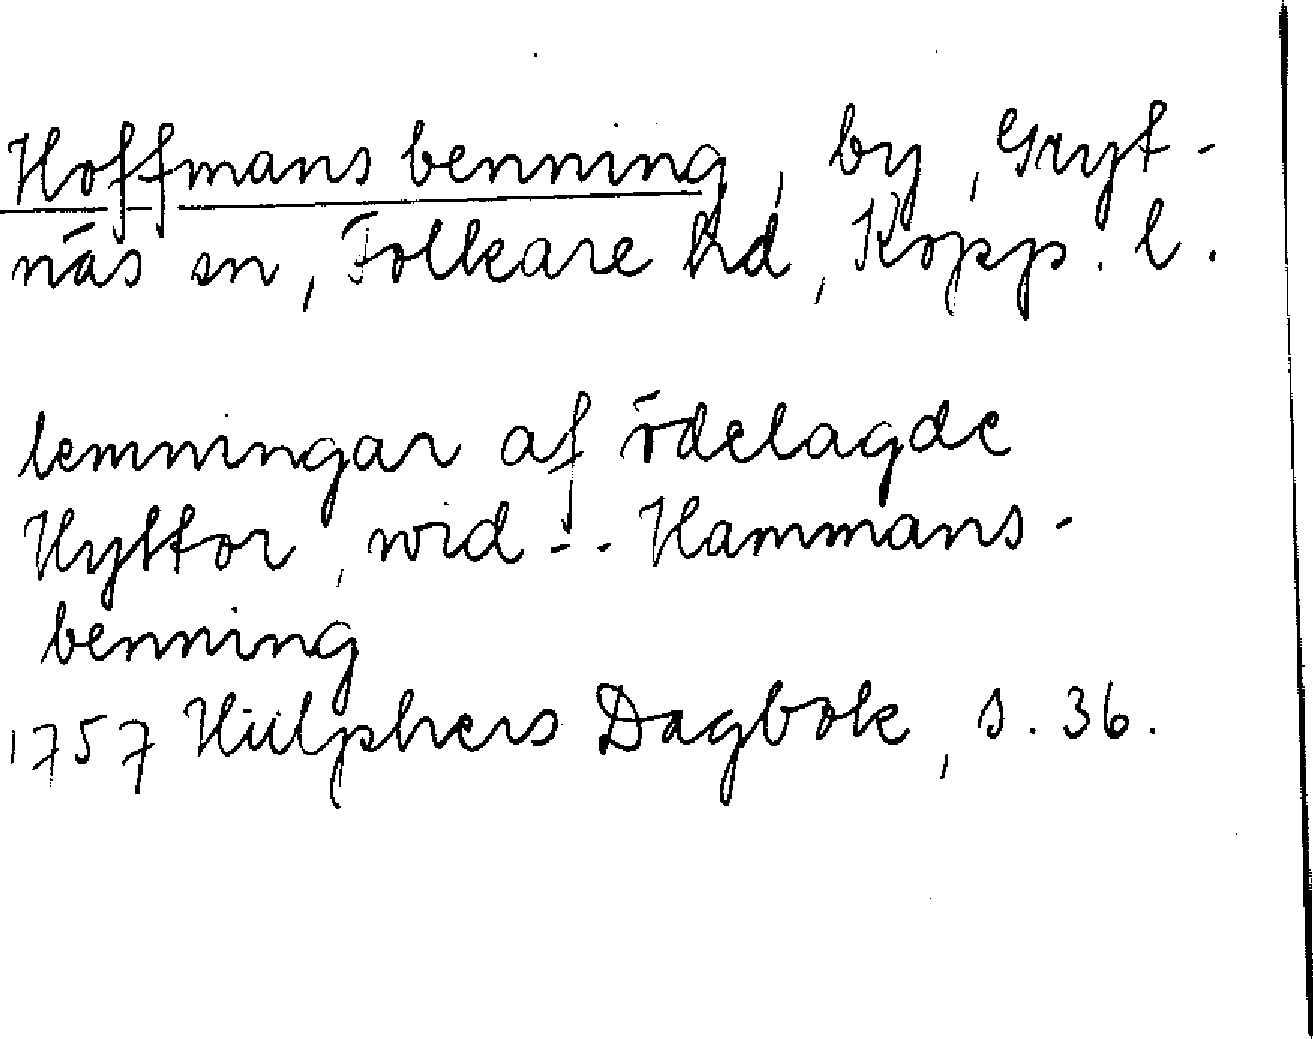 Hoffmansbenning, by, Gryt-
näs sn, Folkare hd, Kopp. l.
lemningar af ödelagde
Hyttor, wid -- Hammans-
benning
1757 Hülphers Dagbok, s. 36.